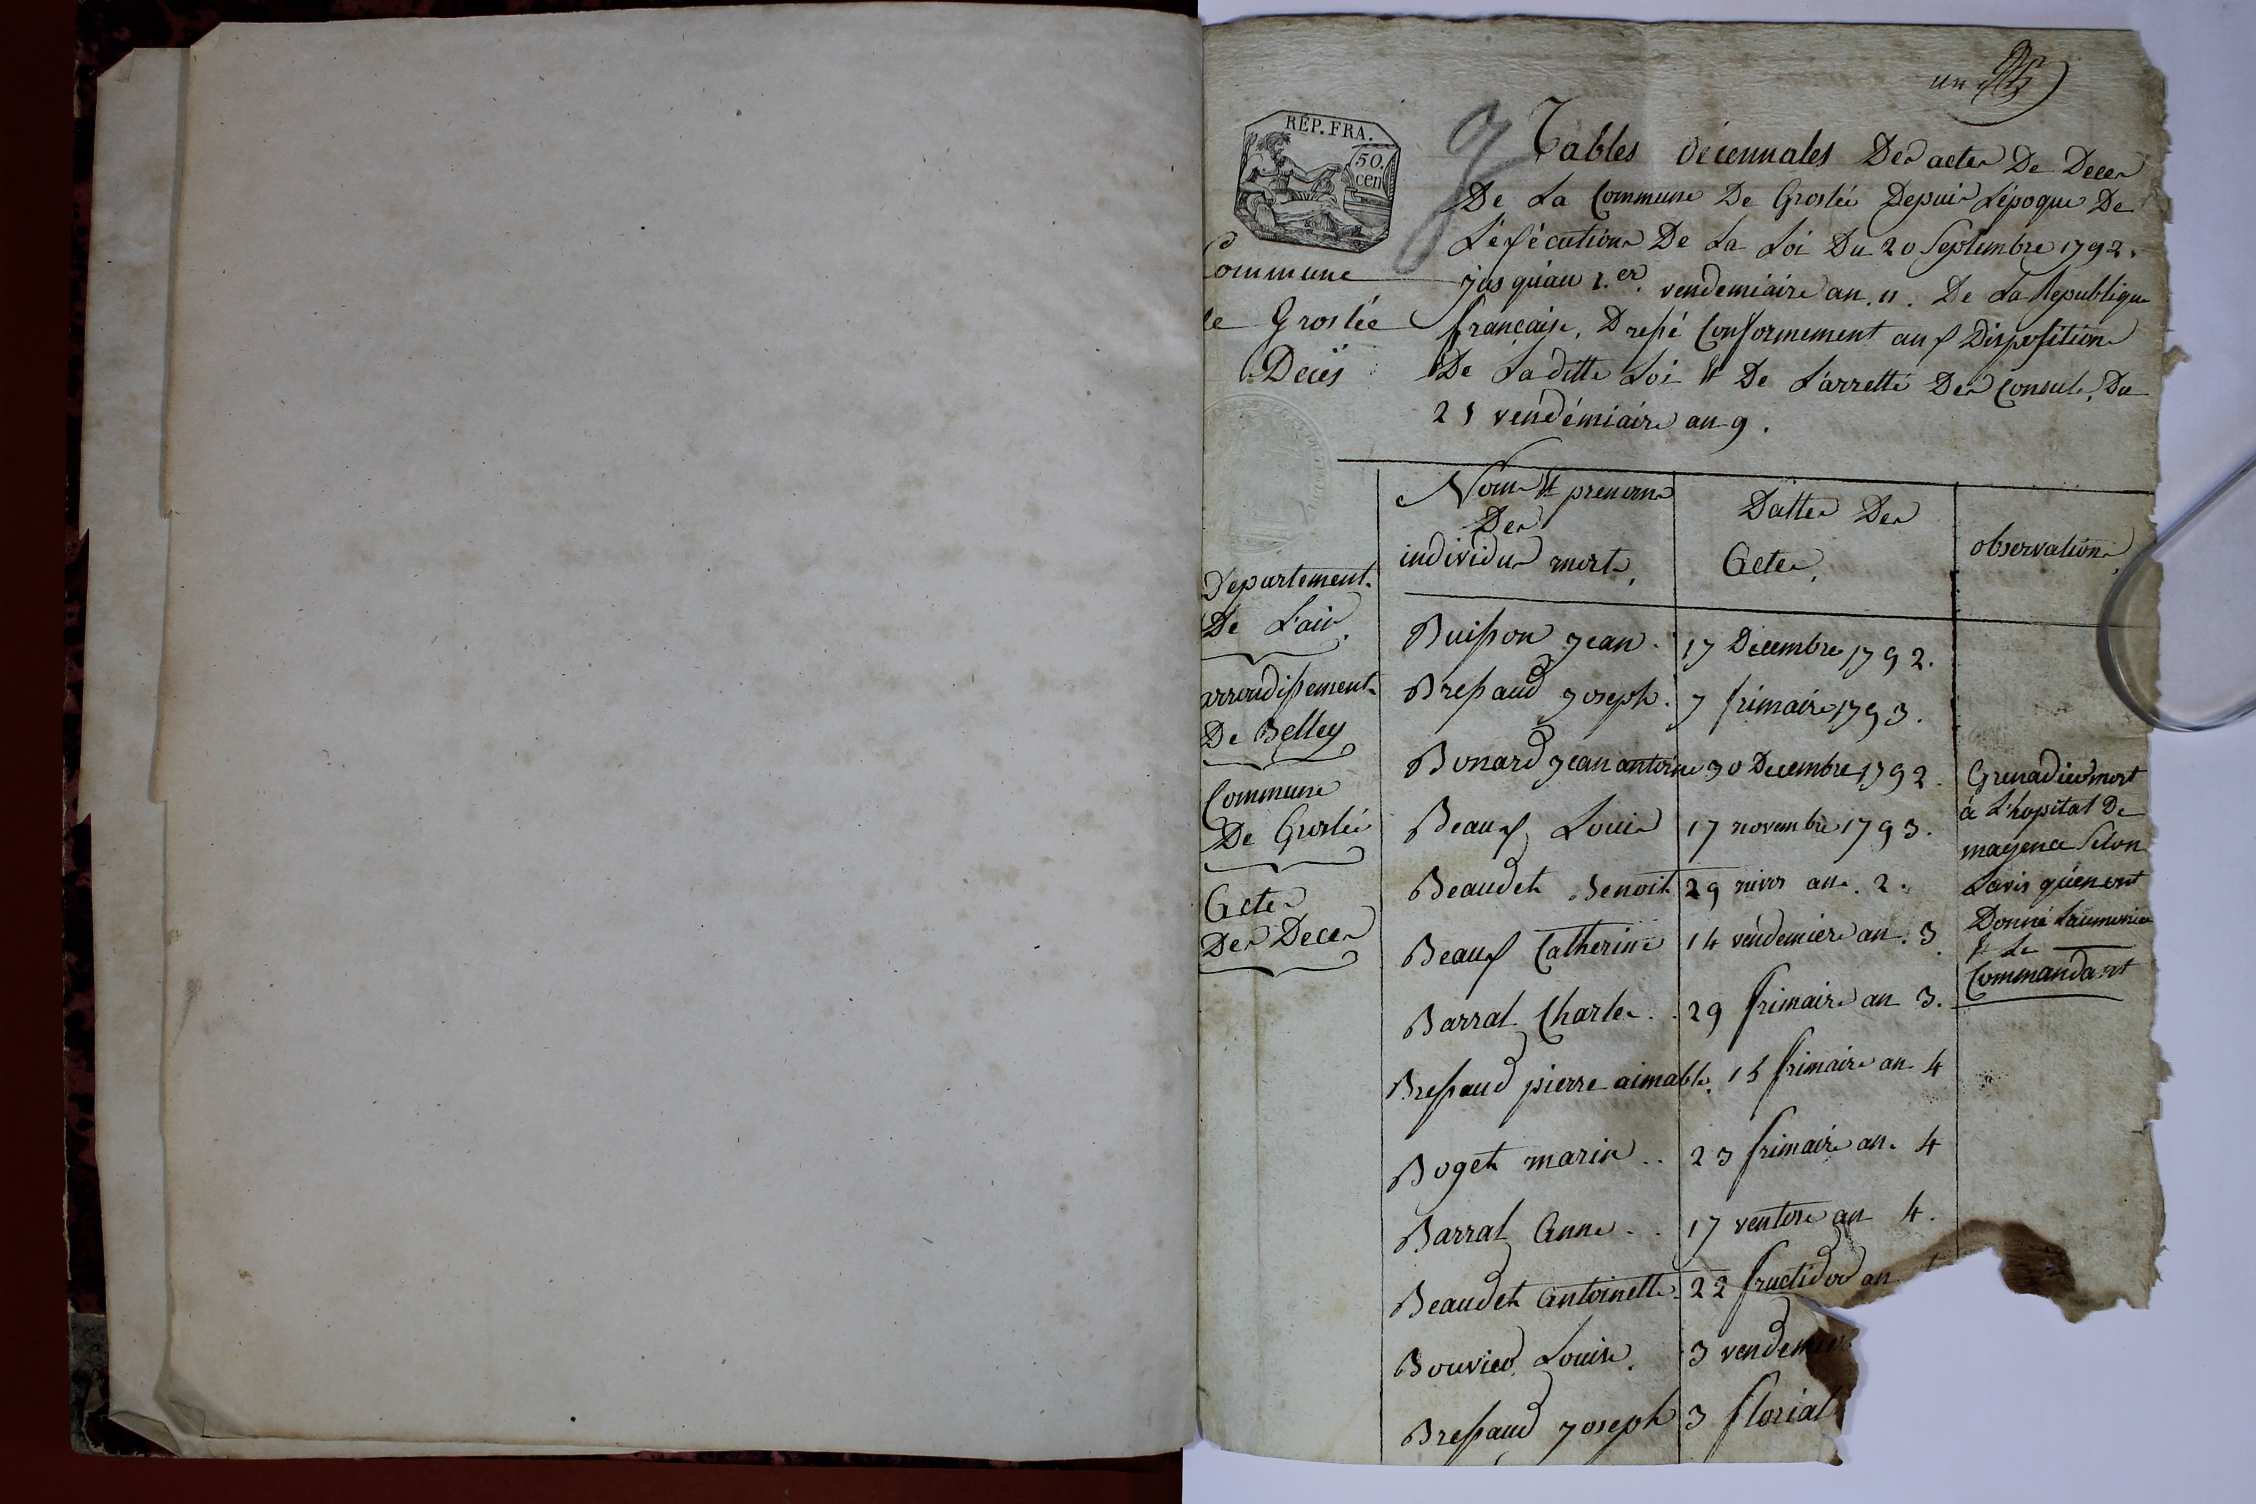 un
RÉP. FRA.
50.
cen
Commune
de Groslée
Decès
Tables décennales Des actes De Deces
De La Commune De Groslée Depuis L'époque De
L'éxécution De La Loi Du 20 Septembre 1792.
jusqu'au 1.er vendemiaire an. 11. De La Republique
française, Dressé Conformement aux Dispositions
De La ditte Loi & De L'arretté Des Consuls, Du
25 vendémiaire an 9.
Departement
De L'ain
arrondissement
De Belley
Commune
De Groslée
Actes
Des Deces
Noms & prenoms Des individus morts,
Dattes Des Actes,
observations,
Buisson jean. 17 Decembre 1792.
Bressaud joseph. 7 frimaire 1793.
Bonard jean antoine 30 Decembre 1792.
Beaux Louis 17 novembre 1793.
Beaudet Benoit 29 nivos an. 2.
Beaux Catherine 14 vendemiere an. 3.
Barral Charles. 29 frimaire an 3.
Bressaud pierre aimable. 15 frimaire an 4
Boget marie.. 23 frimaire an. 4
Barral Anne.. 17 ventose an 4.
Beaudet Antoinette. 22 fructidor an
Bouvier Louise. 3 vendemier
Bressaud joseph 3 florial
Grenadier mort
à L'hopital De
mayence Selon
L'avis qu'en ont
Donné L'aumonier
& Le
Commandant